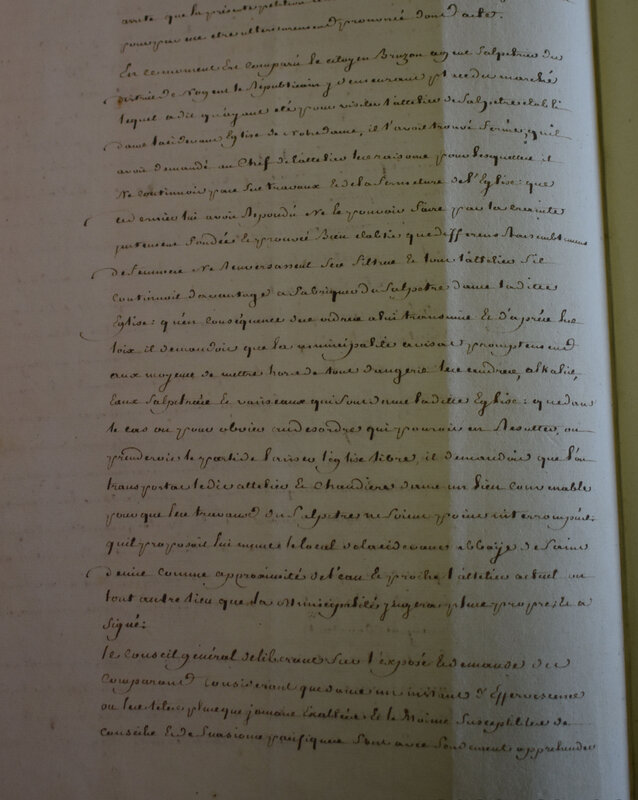 arrêté que la présente petition
pour par être ulterieurement prononcé dont acte.
En ce moment Est comparû le citoyen Bruzon agent Salpetrier du
district de Nogent le Républicain y demeurant place du marché
lequel a dit qu'ayant été pour visiter l'attelier de Salpetre établi
dans la cidevant Eglise de Notredame, il l'avoit trouvé fermé, qu'il
avoit demandé au Chef de l'attelier les raisons pour lesquelles il
Ne continuoit pas Ses travaux Et de la fermeture de l'Eglise: que
ce dernier lui avoit Repondû Ne le pouvoir faire par la crainte
justement fondée Et prouvée Bien établie que differens Rassemblemens
de femmes Ne Renversassent Ses filtres Et tout l'attelier S'il
Continuoit davantage a fabriquer du Salpetre dans ladite
Eglise: qu'en conséquence des ordres a lui transmis Et d'après les
loix il demandoit que la municipalité avisat promptement
aux moyens de mettre hors de tout dangers les cendres, alkalis,
Eaux Salpetrées Et vaisseaux qui Sont dans ladite Eglise: que dans
le cas ou pour obvier au desordre qui pouroit en Resulter, on
prenderoit le parti de laisser l'église libre, il demandoit que l'on
transportat ledit attelier Et Chaudiere dans un lieu convenable
pour que les travaux du Salpetre ne Soient point interrompûs.
qu'il proposoit lui même le local de la cidevant abbaïe de Saint
denis comme approximité de l'eau Et proche l'attelier actuel ou
tout autre lieu que la Municipalité jugera plus propre; Et a
Signé:
le Conseil général deliberant Sur l'exposé Et demande du
Comparant Considerant que dans un instant d'Effervescence
ou les têtes plus que jamais Exaltées Et le Moins Susceptibles de
Conseils Et de Suasions pacifiques Sont avec fondement apprehender